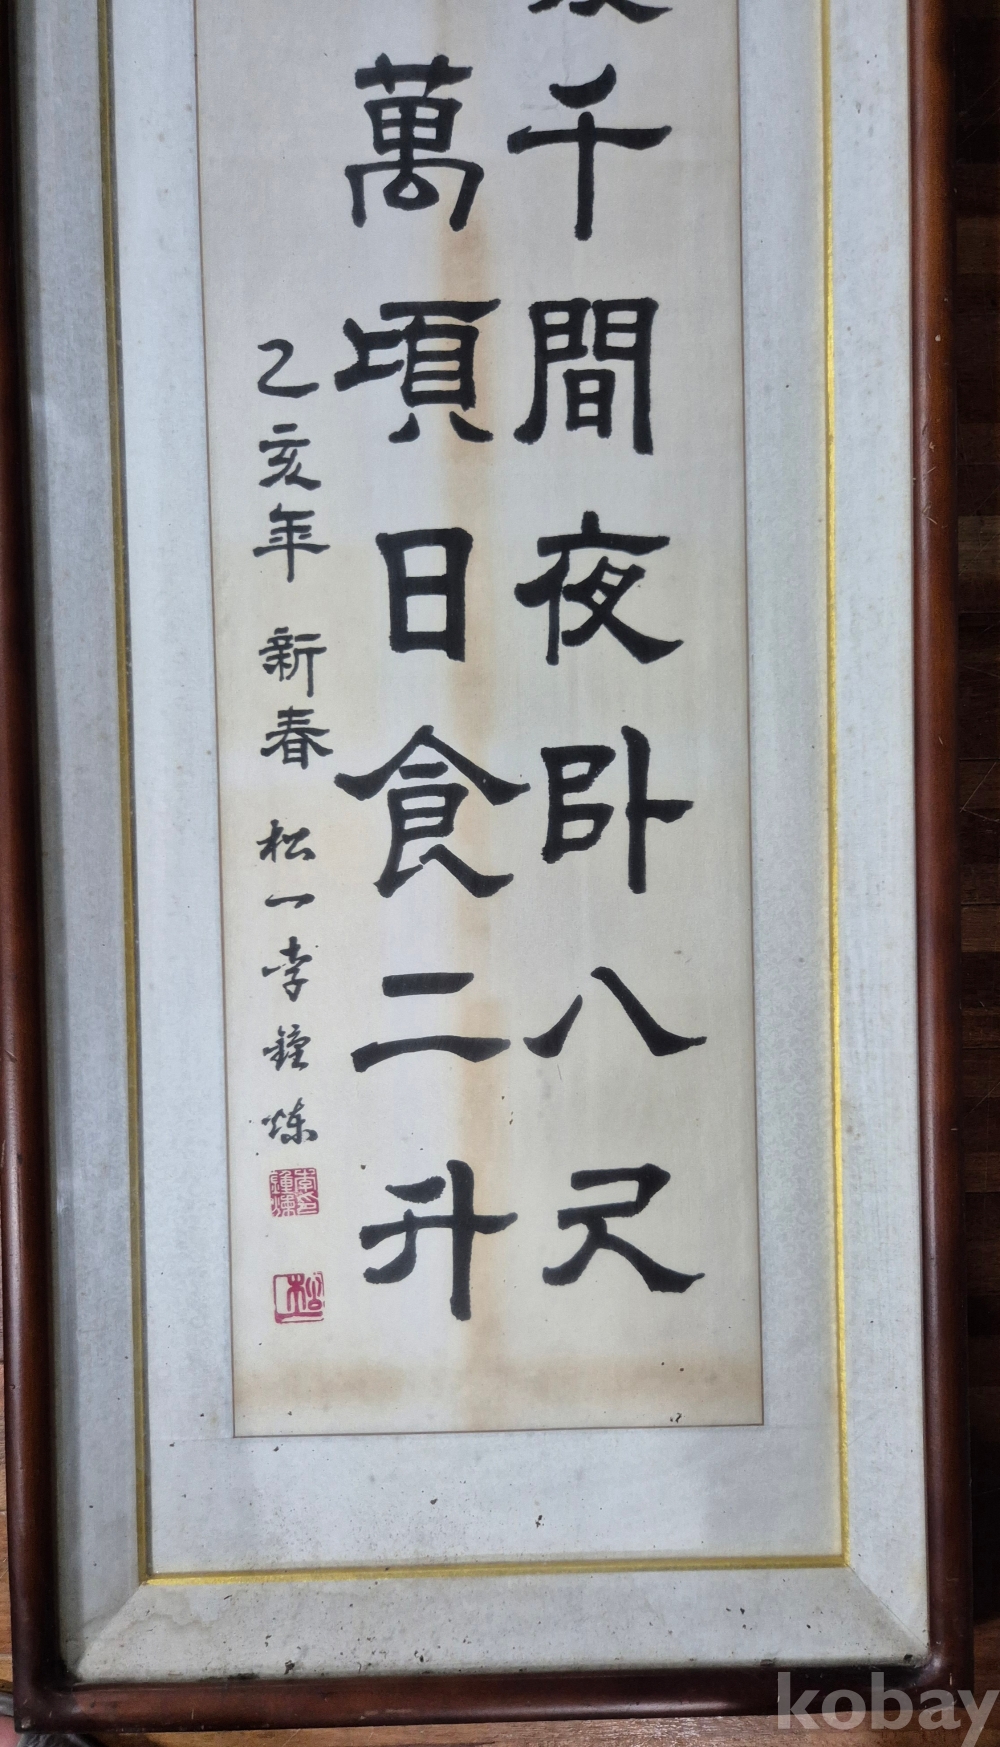 千間夜臥八尺
萬頃日食二升
乙亥年 新春 松一 李鍾煉
kobay